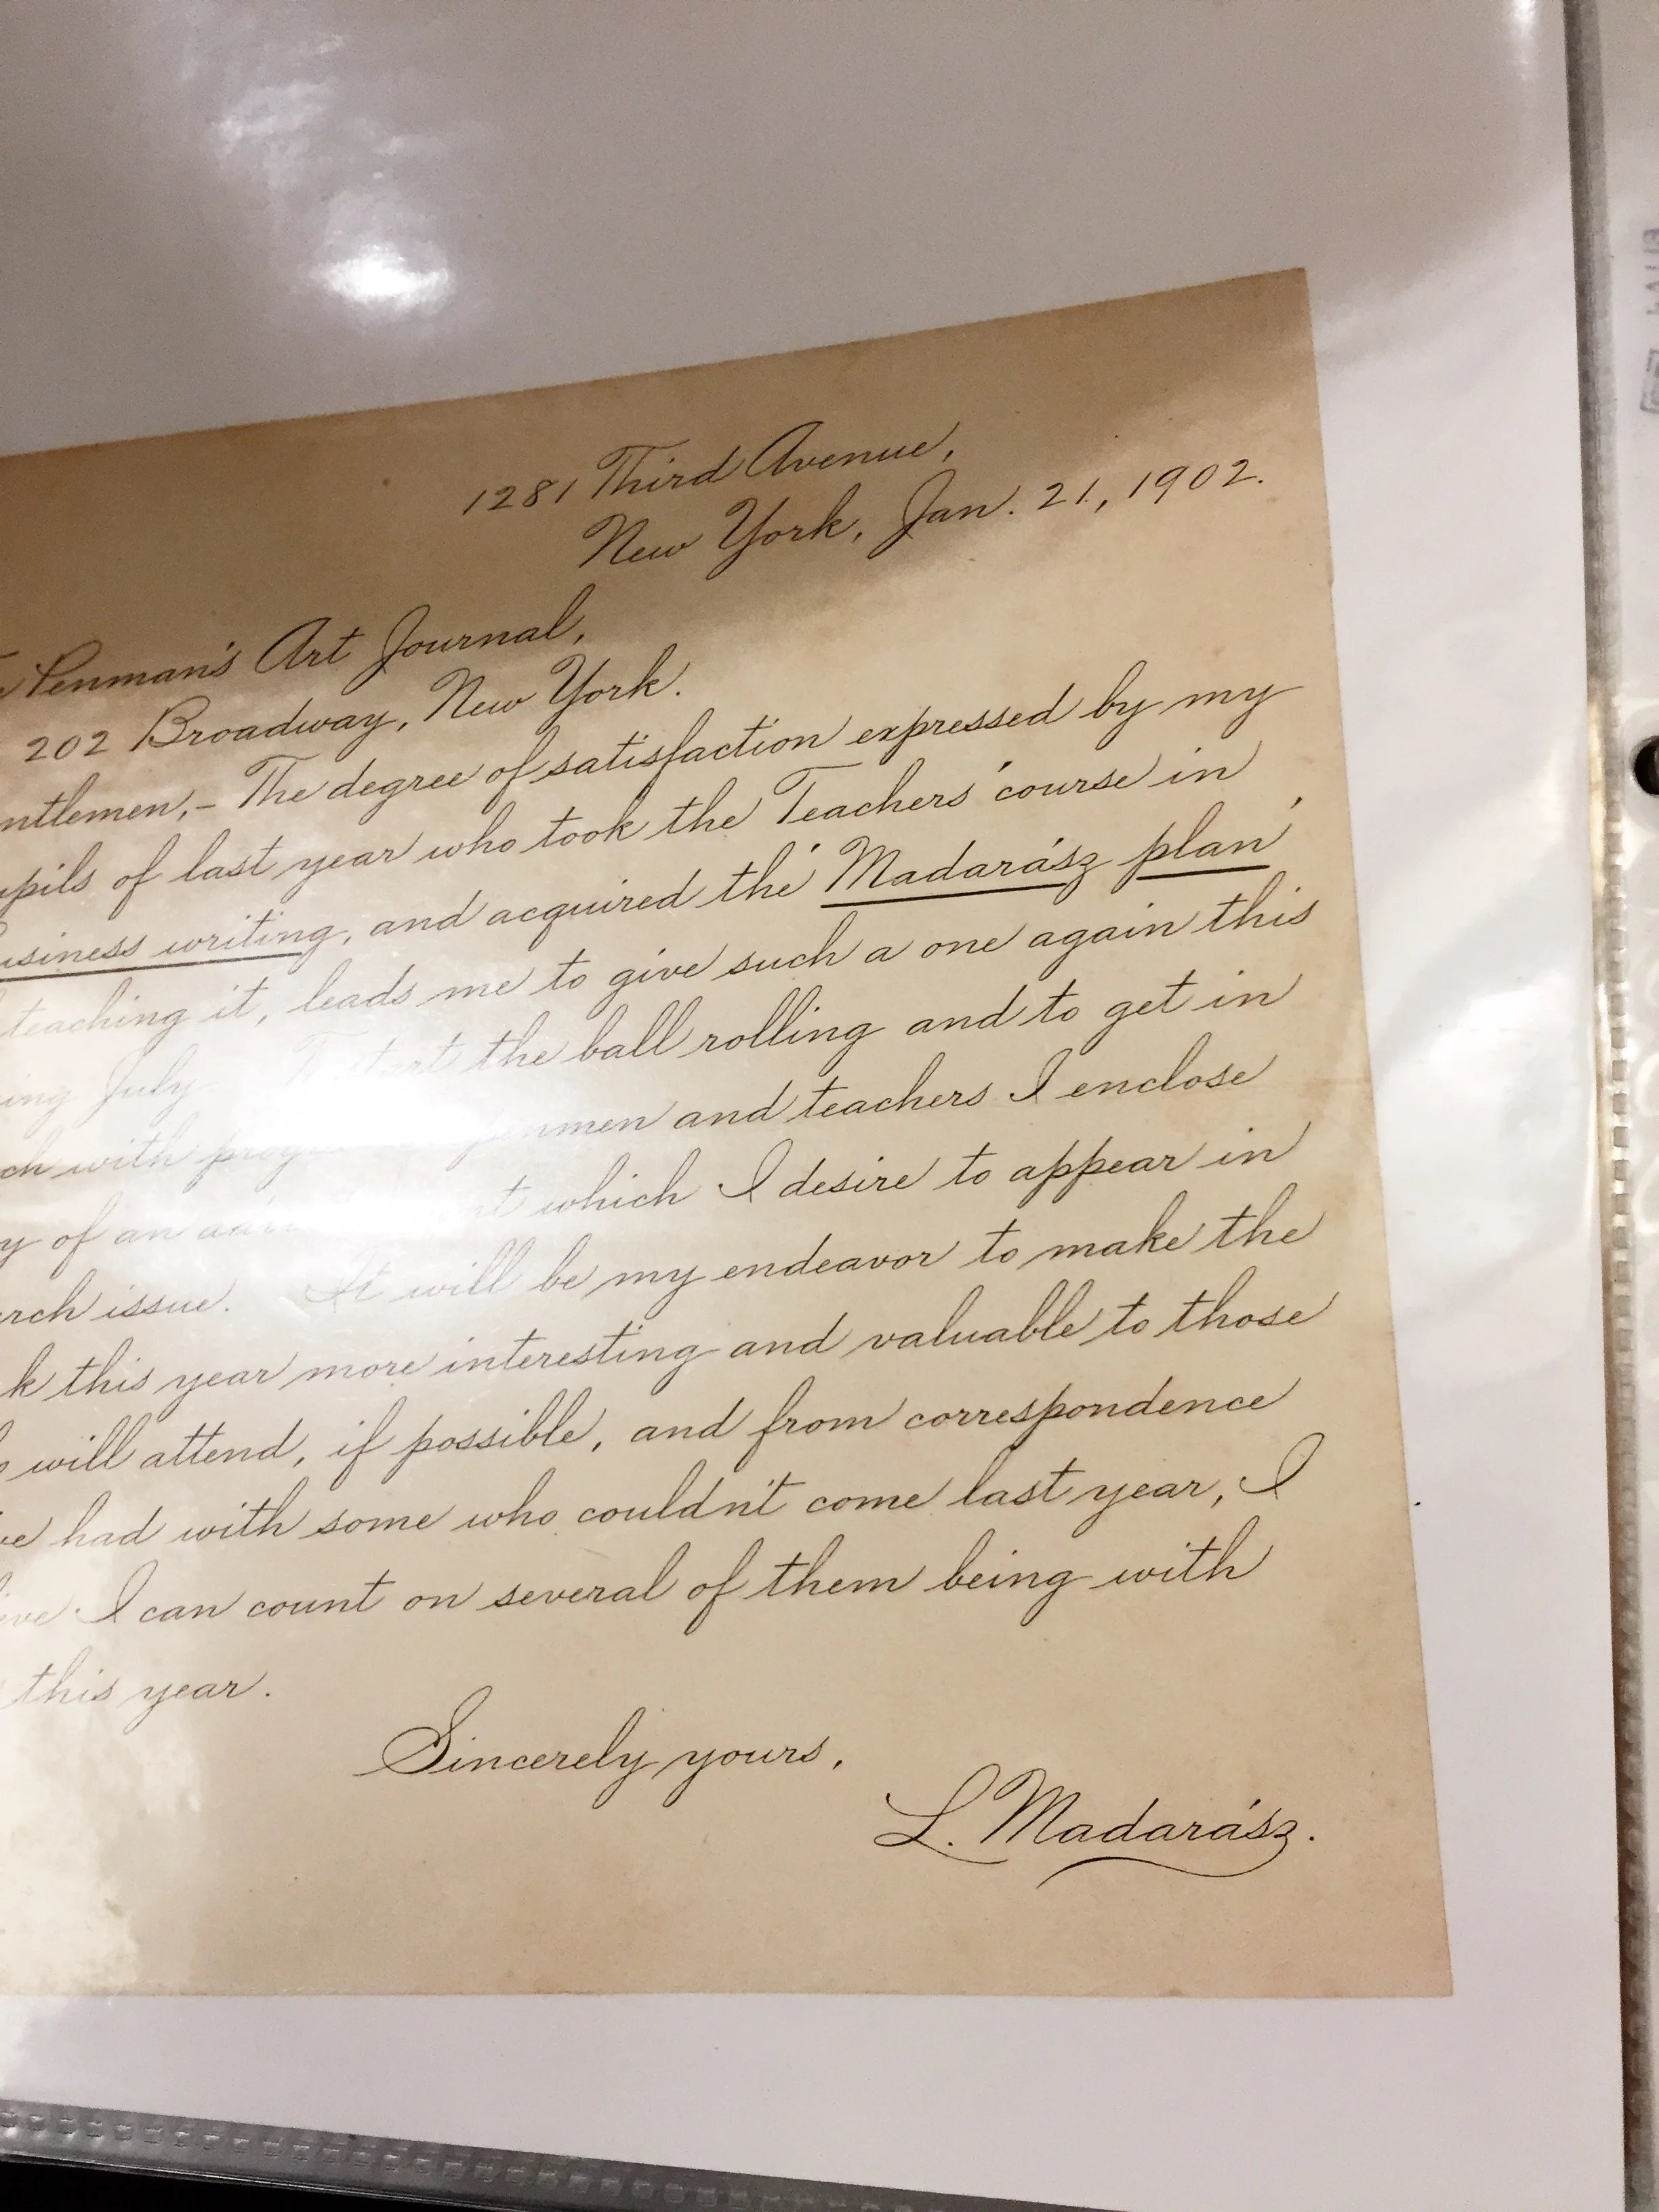 1281 Third Avenue,
New York, Jan. 21, 1902.
Penman's Art Journal,
202 Broadway, New York.
ntlemen,- The degree of satisfaction expressed by my
upils of last year who took the Teachers' course in
usiness writing, and acquired the Madarász plan
teaching it, leads me to give such a one again this
ing July the ball rolling and to get in
ch with and teachers I enclose
y of an which I desire to appear in
rch issue. It will be my endeavor to make the
k this year more interesting and valuable to those
will attend, if possible, and from correspondence
ve had with some who couldn't come last year, I
ieve I can count on several of them being with
this year.
Sincerely yours,
L. Madarász.